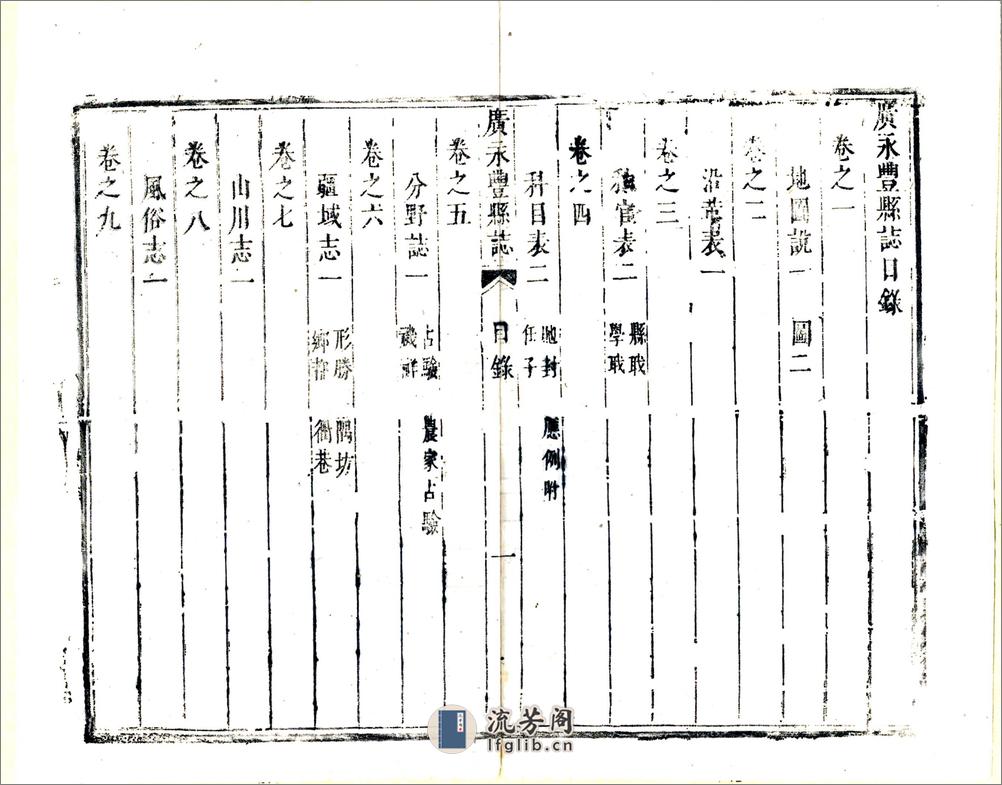 廣永豐縣誌目錄
卷之一
地圖說一　圖二
卷之二
沿革表一
卷之三
秩官表二　縣職　學職
卷之四
科目表二　馳封　任子　應例附
廣永豐縣誌　目錄　一
卷之五
分野誌一　占驗　禨祥　農家占驗
卷之六
疆域志一　形勝　鄉都　隅坊　衢巷
卷之七
山川志一
卷之八
風俗志一
卷之九
流芳阁
lfglib.cn